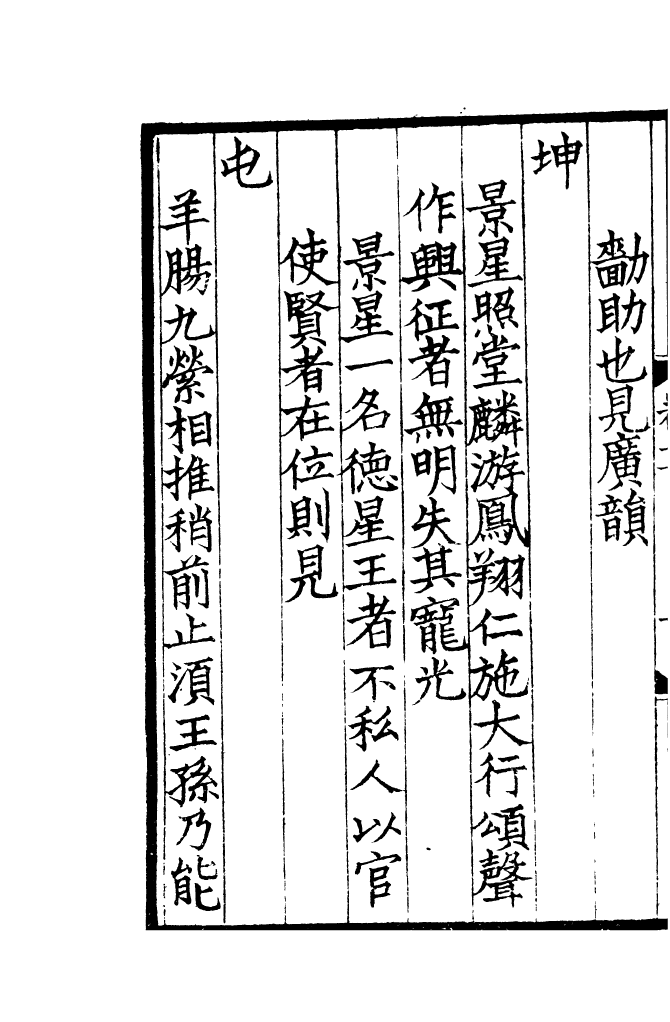 勴助也見廣韻
坤
景星照堂麟游鳳翔仁施大行頌聲
作興征者無明失其寵光
景星一名德星王者不私人以官
使賢者在位則見
屯
羊腸九縈相推稍前止湏王孫乃能